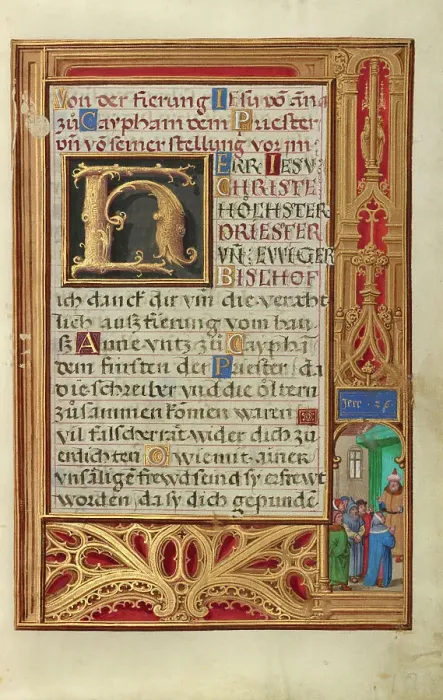 Von der fierung Iesu võ ãna
zů Caypham dem Priester
vñ võ seiner stellung vor im
ERR IESV
CHRISTE
HÖCHSTER
PRIESTER
VÑ EWIGER
BISCHOF
ich danck dir vm die veracht
lich ausz fierung vom hau
sz Anne vntz zů Cayphã
dem fürsten der Priester da
die schreiber vnd die öltern
zůsammen komen waren
vil falscher rät wider dich zů
erdichten wie mit ainer
vnsäligen frewd seind sy erfrewt
worden da sy dich gepunde
Jere 26